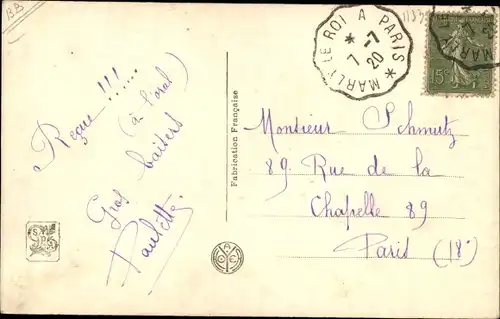 BB
Reçue !!!......
(à l'oral)
Gros baisers
Paulette
Fabrication Française
MARLY LE ROI A PARIS
7-7
20
15c
Monsieur Schmutz
89 Rue de la
Chapelle 89
Paris (18e)